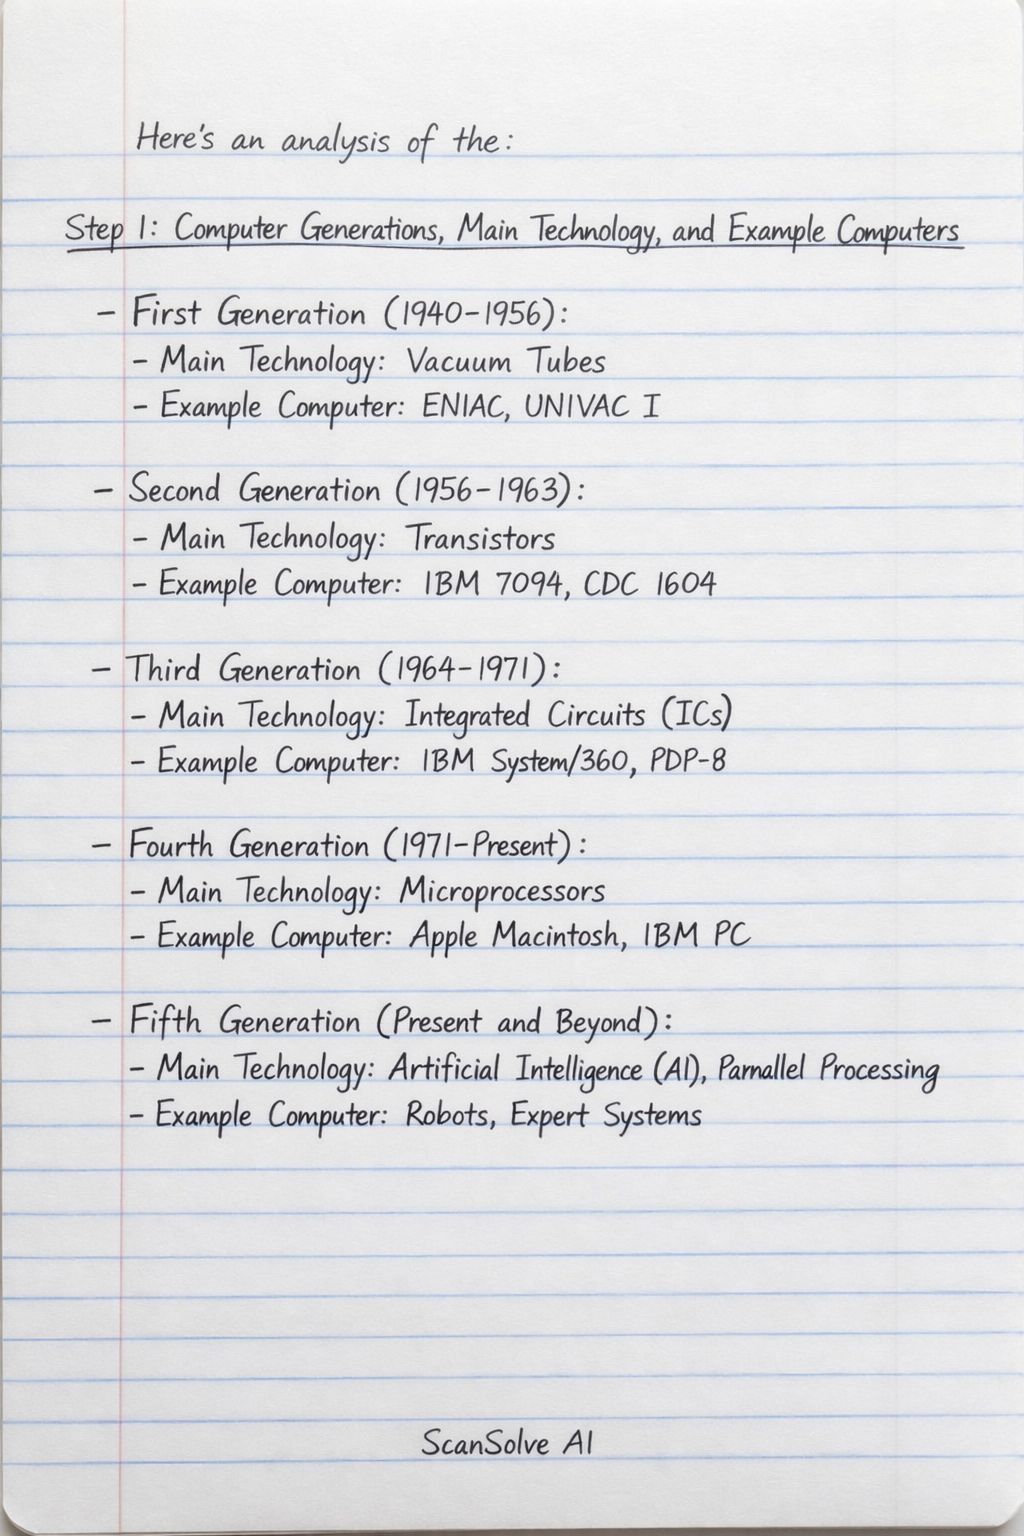 Here's an analysis of the:
Step 1: Computer Generations, Main Technology, and Example Computers
– First Generation (1940–1956):
– Main Technology: Vacuum Tubes
– Example Computer: ENIAC, UNIVAC I
– Second Generation (1956–1963):
– Main Technology: Transistors
– Example Computer: IBM 7094, CDC 1604
– Third Generation (1964–1971):
– Main Technology: Integrated Circuits (ICs)
– Example Computer: IBM System/360, PDP-8
– Fourth Generation (1971–Present):
– Main Technology: Microprocessors
– Example Computer: Apple Macintosh, IBM PC
– Fifth Generation (Present and Beyond):
– Main Technology: Artificial Intelligence (AI), Parnallel Processing
– Example Computer: Robots, Expert Systems
ScanSolve AI